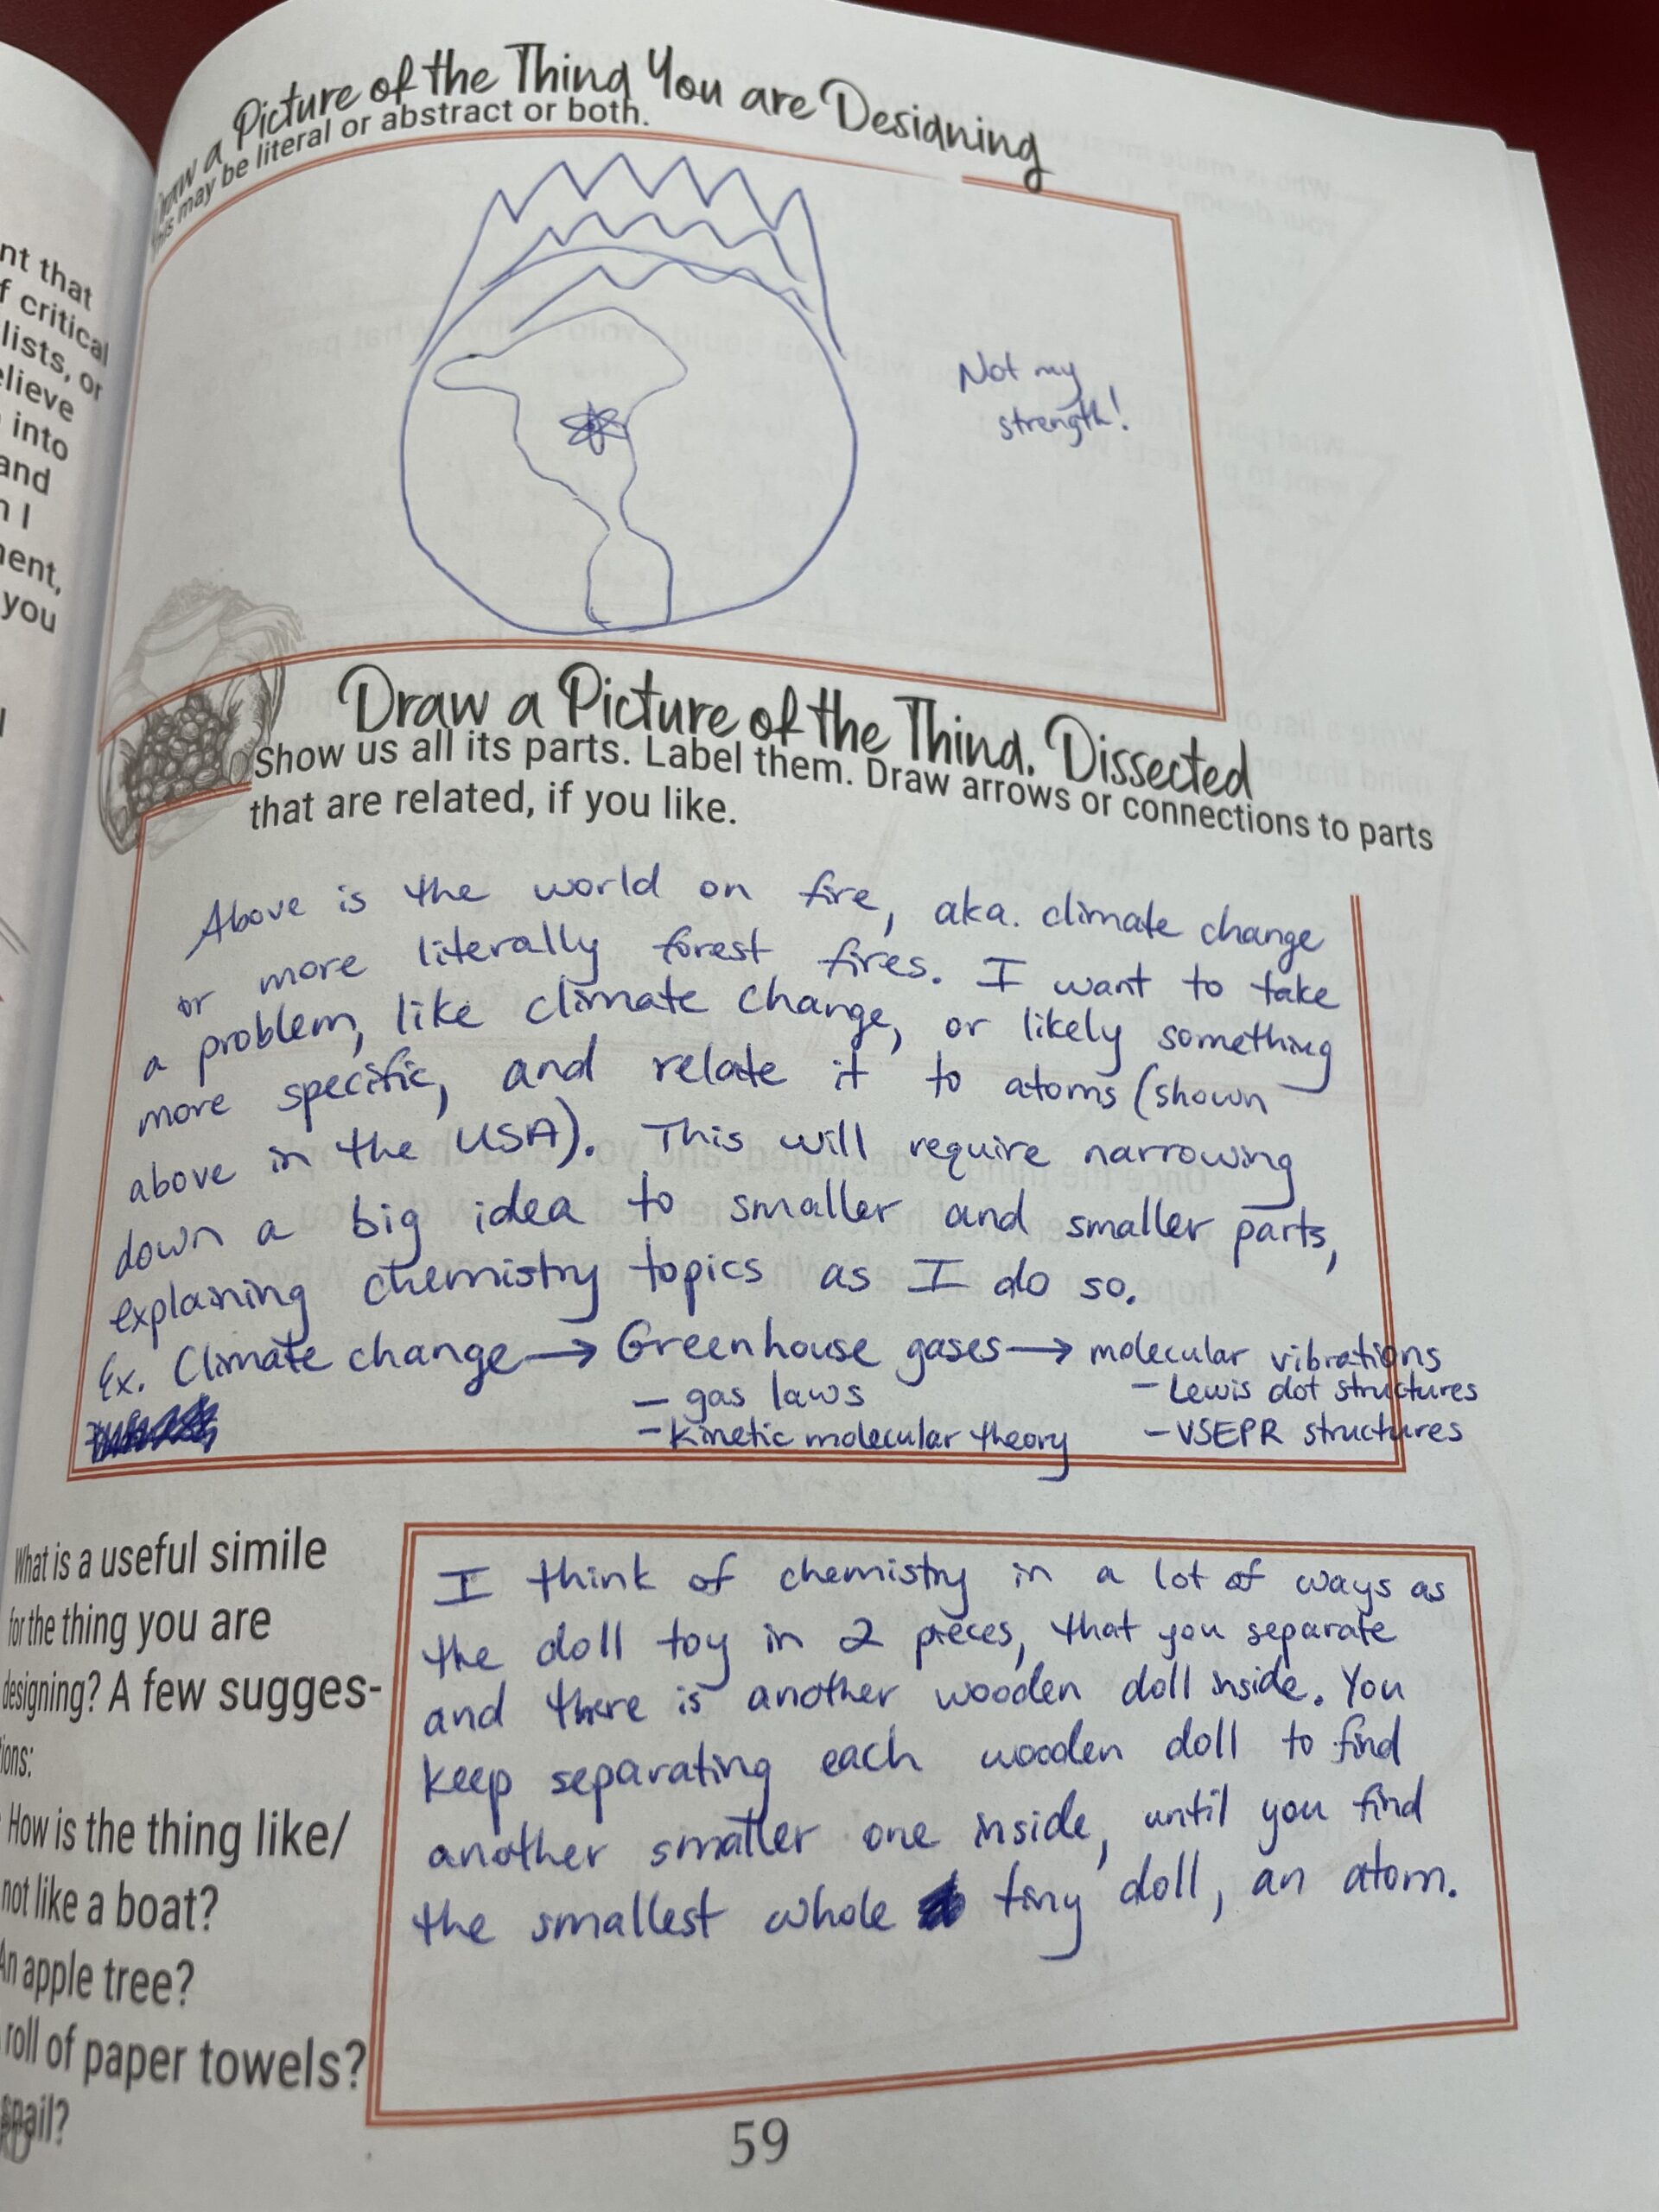 Draw a Picture of the Thing You are Designing
This may be literal or abstract or both.
Not my
strength!
nt that
f critical
lists, or
elieve
into
and
n I
nent,
you
Draw a Picture of the Thing, Dissected
Show us all its parts. Label them. Draw arrows or connections to parts
that are related, if you like.
Above is the world on fire, aka. climate change
or more literally forest fires. I want to take
a problem, like climate change, or likely something
more specific, and relate it to atoms (shown
above in the USA). This will require narrowing
down a big idea to smaller and smaller parts,
explaining chemistry topics as I do so.
Ex. Climate change → Greenhouse gases → molecular vibrations
- gas laws - Lewis dot structures
- Kinetic molecular theory - VSEPR structures
What is a useful simile
for the thing you are
designing? A few sugges-
tions:
How is the thing like/
not like a boat?
An apple tree?
roll of paper towels?
snail?
I think of chemistry in a lot of ways as
the doll toy in 2 pieces, that you separate
and there is another wooden doll inside. You
keep separating each wooden doll to find
another smaller one inside, until you find
the smallest whole tiny doll, an atom.
59